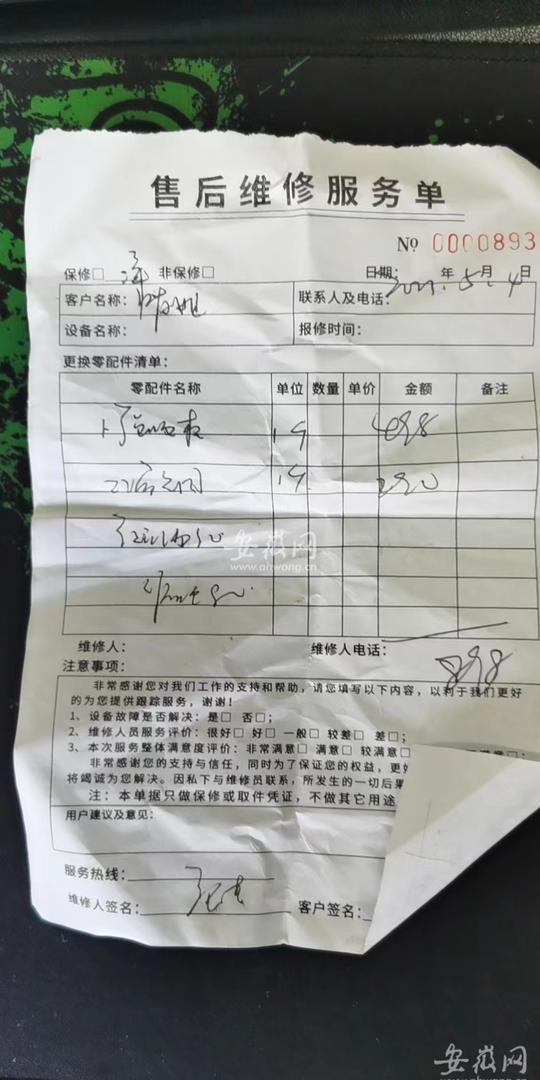 售后维修服务单
№ 0000893
保修□ 非保修□ 日期: 2021年5月4日
客户名称: 联系人及电话:
设备名称: 报修时间:
更换零配件清单:
零配件名称 单位 数量 单价 金额 备注
498
安徽网
www.ahwang.cn
维修人: 维修人电话:
注意事项:
非常感谢您对我们工作的支持和帮助，请您填写以下内容，以利于我们更好
的为您提供跟踪服务，谢谢!
1、设备故障是否解决: 是□ 否□;
2、维修人员服务评价: 很好□ 好□ 一般□ 较差□ 差□;
3、本次服务整体满意度评价: 非常满意□ 满意□ 较满意□
非常感谢您的支持与信任，同时为了保证您的权益，更好
将竭诚为您解决。因私下与维修员联系，所发生的一切后果
注: 本单据只做保修或取件凭证，不做其它用途
用户建议及意见:
服务热线:
维修人签名: 客户签名:
安徽网
www.ahwang.cn